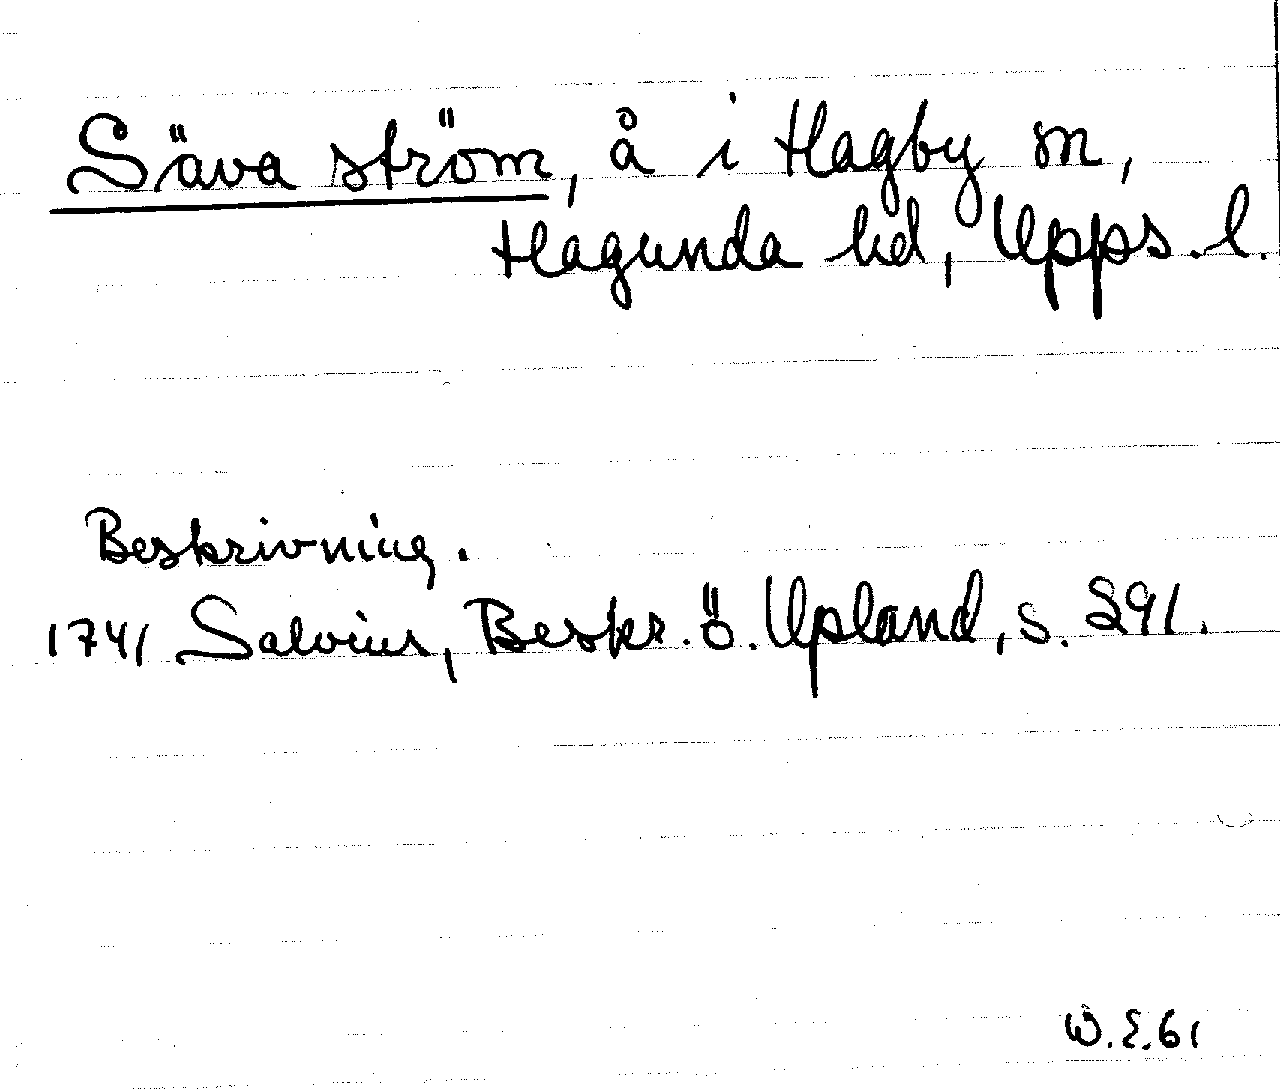 Säva ström, å i Hagby sn,
Hagunda hd, Upps. l.
Beskrivning.
1741 Salvius, Beskr. ö. Upland, s. 291.
W.E.61